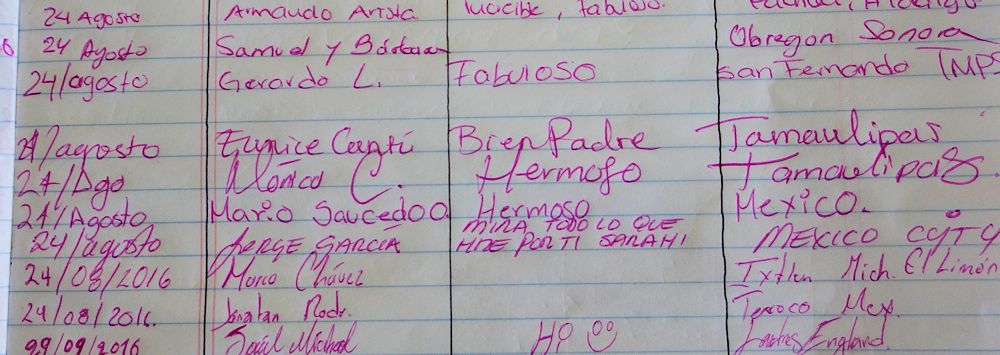 24 Agosto Armando Arista fabuloso.
24 Agosto Samuel y Bárbara Obregon Sonora
24/agosto Gerardo L. Fabuloso San Fernando TMPS
24/agosto Eunice Cantú Bien Padre Tamaulipas
24/Ago Mónica C. Hermoso Tamaulipas
24/Agosto Mario Saucedo Hermoso Mexico.
24/agosto JERGE GARCIA MIRA TODO LO QUE HISE POR TI SARAHI MEXICO CYTY
24/08/2016 Marco Chávez Ixtlan Mich. El Limón
24/08/2016. Jonatan Rodr. Mex.
09/2016 Michael Hi England